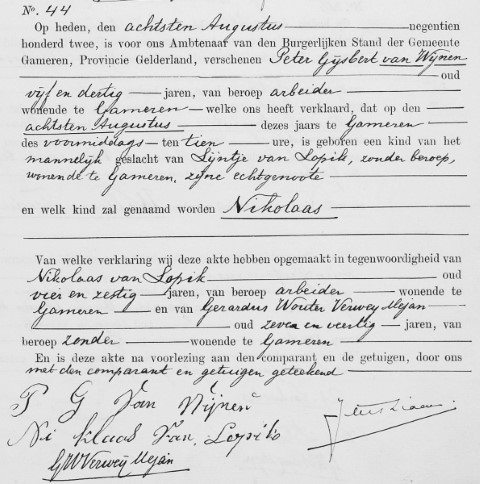 No. 44
Op heden, den achtsten Augustus negentien
honderd twee, is voor ons Ambtenaar van den Burgerlijken Stand der Gemeente
Gameren, Provincie Gelderland, verschenen Peter Gijsbert van Wijnen
oud
vijf en dertig jaren, van beroep arbeider
wonende te Gameren welke ons heeft verklaard, dat op den
achtsten Augustus dezes jaars te Gameren
des voormiddags ten tien ure, is geboren een kind van het
mannelijk geslacht van Lijntje van Lopik, zonder beroep,
wonende te Gameren, zijne echtgenoote
en welk kind zal genaamd worden Nikolaas
Van welke verklaring wij deze akte hebben opgemaakt in tegenwoordigheid van
Nikolaas van Lopik oud
vier en zestig jaren, van beroep arbeider wonende te
Gameren en van Gerardus Wouter Verweij Mejan
oud zeven en veertig jaren, van
beroep zonder wonende te Gameren
En is deze akte na voorlezing aan den comparant en de getuigen, door ons
met den comparant en getuigen geteekend
P G Van Wijnen
Ni klaas Van Lopik
GWVerweij Mejan